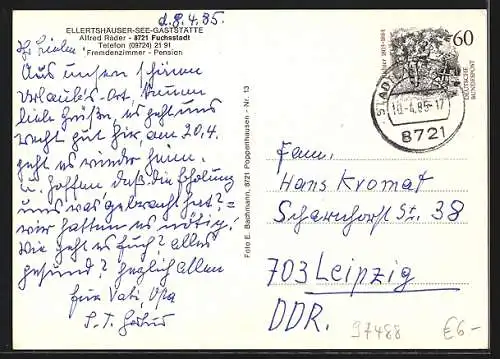 ELLERTSHÄUSER-SEE-GASTSTÄTTE
Alfred Räder - 8721 Fuchsstadt
Telefon (09724) 21 91
Fremdenzimmer - Pension
d. 8.4.85.
Ihr Lieben!
Aus unsern schönen
Urlaubs-Ort, senden
liebe Grüße, es geht uns
recht gut hier am 20.4.
geht es wieder heim.
u. hoffen daß die Erholung
uns was gebracht hat? =
wir hatten es nötig!
Wie geht es Euch? alles
gesund? herzlich allen
Eure Vati, Opa
Foto E. Bachmann, 8721 Poppenhausen - Nr. 13
60
DEUTSCHE
BUNDESPOST
1813-1865
10.-4.85-17
8721
Fam.
Hans Kromat
Scharnhorst St. 38
703 Leipzig
DDR.
97488
€6-